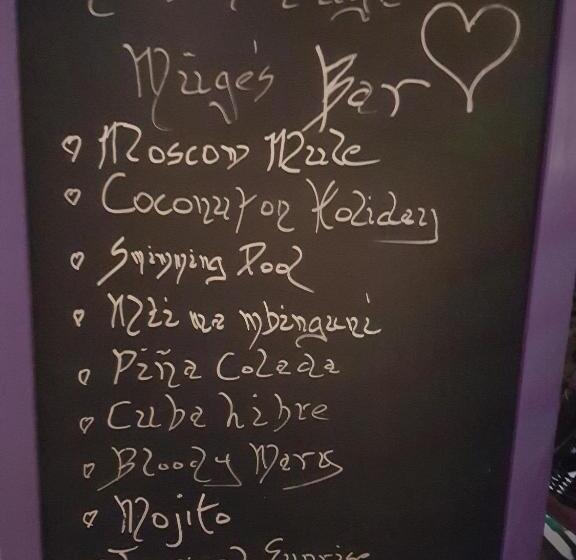 Müge's Bar
Moscow Mule
Coconut on Holiday
Swimming Pool
Mti wa mbinguni
Piña Colada
Cuba Libre
Bloody Mary
Mojito
Sunrise